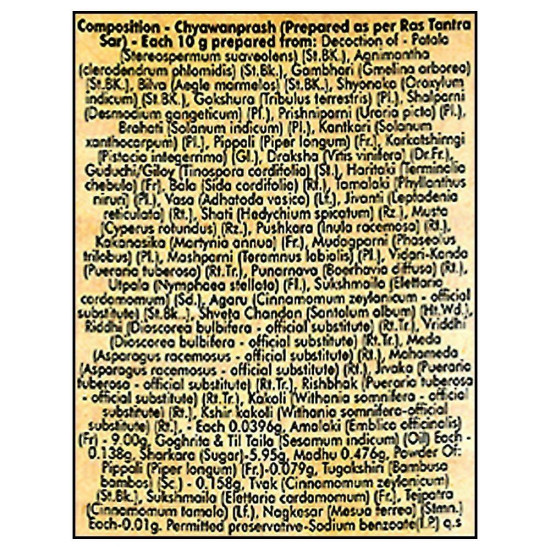 Composition - Chyawanprash (Prepared as per Ras Tantra
Sar) - Each 10 g prepared from: Decoction of - Patala
(Stereospermum suaveolens) (St.Bk.), Agnimantha
(clerodendrum phlomidis) (St.Bk.), Gambhari (Gmelina arborea)
(St.BK.), Bilva (Aegle marmelos) (St.Bk.), Shyonaka (Oroxylum
indicum) (St.BK.), Gokshura (Tribulus terrestris) (Pl.), Shalparni
(Desmodium gangeticum) (Pl.), Prishniparni (Uraria picta) (Pl.),
Brahati (Solanum indicum) (Pl.), Kantkari (Solanum
xanthocarpum) (Pl.), Pippali (Piper longum) (Fr.), Karkatshirngi
(Pistacia integerrima) (Gl.), Draksha (Vitis vinifera) (Dr.Fr.),
Guduchi/Giloy (Tinospora cordifolia) (St.), Haritaki (Terminalia
chebula) (Fr), Bala (Sida cordifolia) (Rt.), Tamalaki (Phyllanthus
niruri) (Pl.), Vasa (Adhatoda vasica) (Lf.), Jivanti (Leptadenia
reticulata) (Rt.), Shati (Hedychium spicatum) (Rz.), Musta
(Cyperus rotundus) (Rz.), Pushkara (Inula racemosa) (Rt.),
Kakanasika (Martynia annua) (Fr.), Mudagparni (Phaseolus
trilobus) (Pl.), Mashparni (Teramnus labialis) (Pl.), Vidari-Kanda
(Pueraria tuberosa) (Rt.Tr.), Punarnava (Boerhavia diffusa) (Rt.),
Utpala (Nymphaea stellata) (Fl.), Sukshmaila (Elettaria
cardamomum) (Sd.), Agaru (Cinnamomum zeylanicum - official
substitute) (St.Bk..), Shveta Chandan (Santalum album) (Ht.Wd.),
Riddhi (Dioscorea bulbifera - official substitute) (Rt.Tr.), Vriddhi
(Dioscorea bulbifera - official substitute) (Rt.Tr.), Meda
(Asparagus racemosus - official substitute) (Rt.), Mahameda
(Asparagus racemosus - official substitute) (Rt.), Jivaka (Pueraria
tuberosa - official substitute) (Rt.Tr.), Rishbhak (Pueraria tuberosa
- official substitute) (Rt.Tr.), Kakoli (Withania somnifera - official
substitute) (Rt.), Kshir kakoli (Withania somnifera-official
substitute) (Rt.), - Each 0.0396g, Amalaki (Emblica officinalis)
(Fr) - 9.00g, Goghrita & Til Taila (Sesamum indicum) (Oil) Each -
0.138g, Sharkara (Sugar)-5.95g, Madhu 0.476g, Powder Of:
Pippali (Piper longum) (Fr.)-0.079g, Tugakshiri (Bambusa
bambos) (Sc.) - 0.158g, Tvak (Cinnamomum zeylanicum)
(St.Bk.), Sukshmaila (Elettaria cardamomum) (Fr.), Tejpatra
(Cinnamomum tamala) (Lf.), Nagkesar (Mesua ferrea) (Stmn.)
Each-0.01g. Permitted preservative-Sodium benzoate(I.P.) q.s